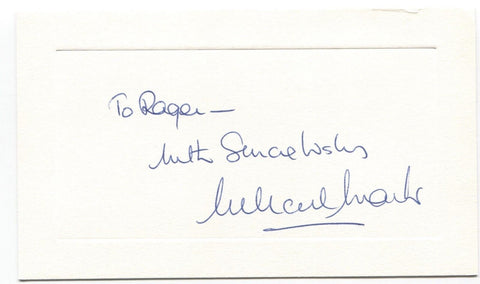 To Roger —
With Sincere Wishes
Michael